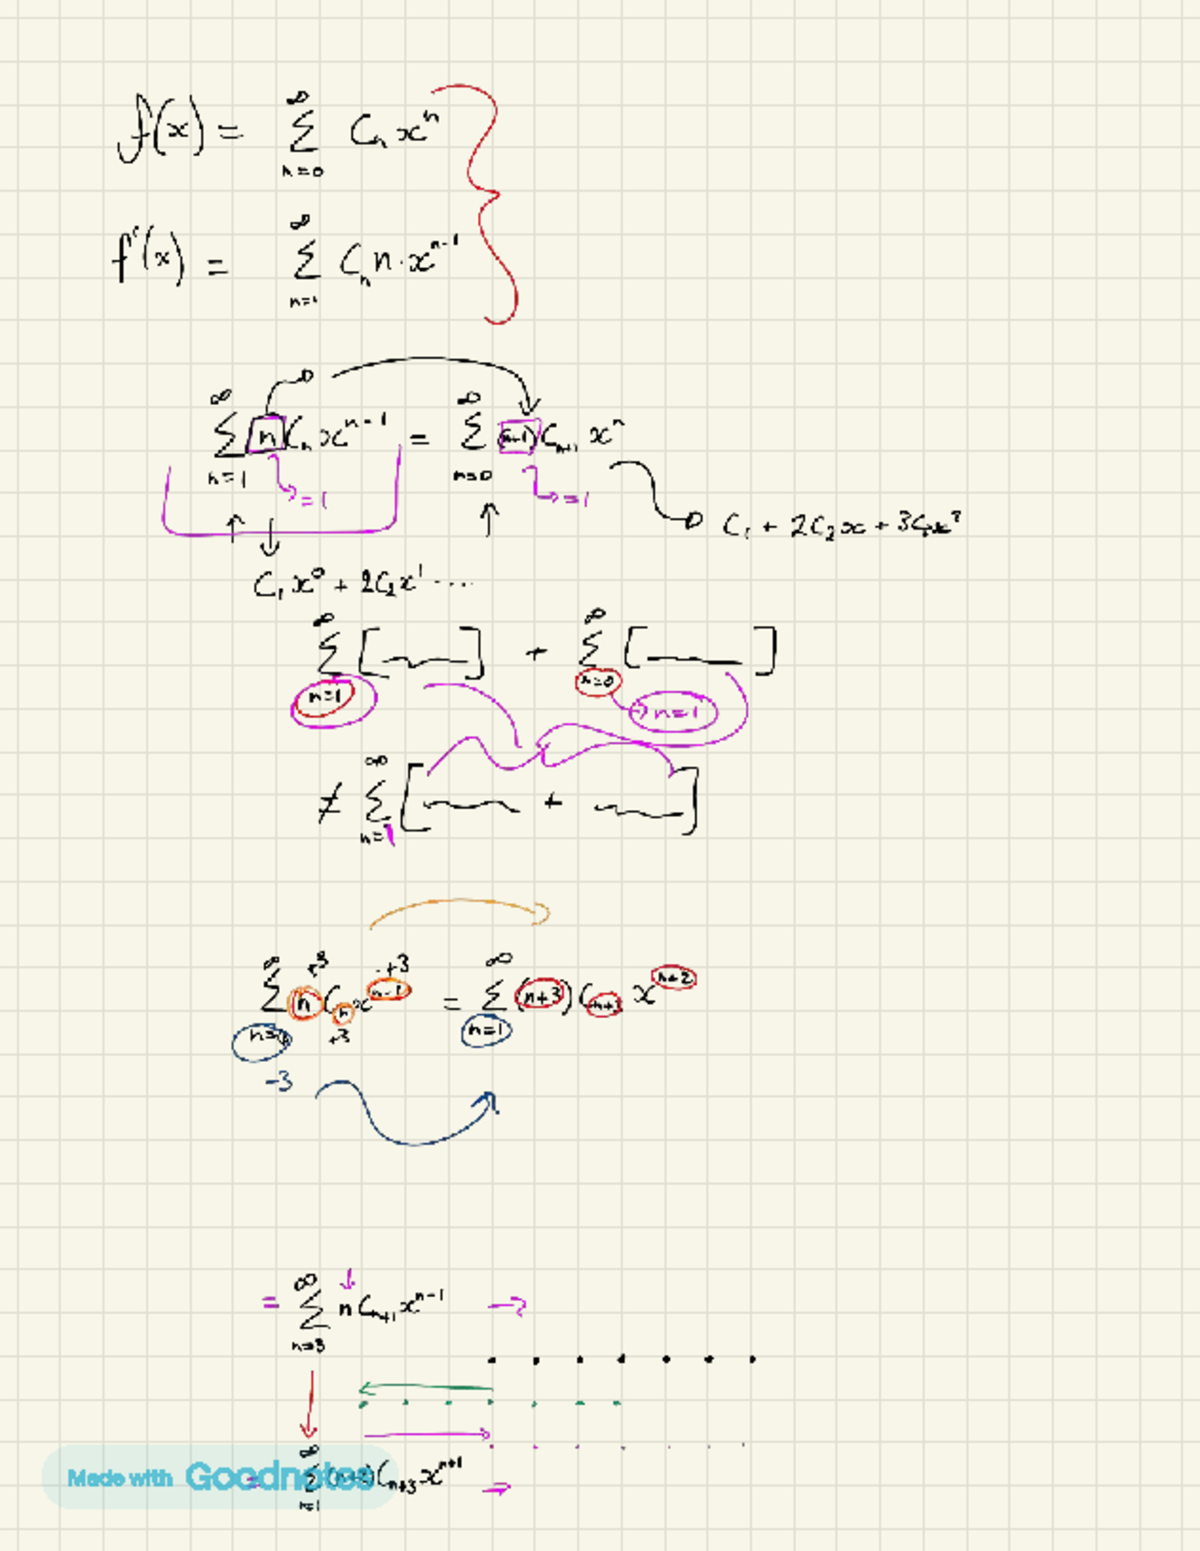 f(x) = ∞ Σ n=0 Cₙ xⁿ
f'(x) = ∞ Σ n=1 Cₙ n·xⁿ⁻¹
∞ Σ n=1 n Cₙ xⁿ⁻¹ = ∞ Σ n=0 (n+1) Cₙ₊₁ xⁿ
=1 =1
C₁ + 2C₂x + 3C₃x²
C₁x⁰ + 2C₂x¹ ....
∞ Σ n=1 [ ] + ∞ Σ n=0 [ ]
n=1
≠ ∞ Σ n=1 [ + ]
+3 -+3
∞ Σ n Cₙ xⁿ⁻¹ = ∞ Σ n=1 (n+3) C xⁿ⁺²
+3
-3
= ∞ Σ n=3 n Cₙ₊₁ xⁿ⁻¹
∞ Σ n=1 (n+2) Cₙ₊₃ xⁿ⁺¹
Made with Goodnotes